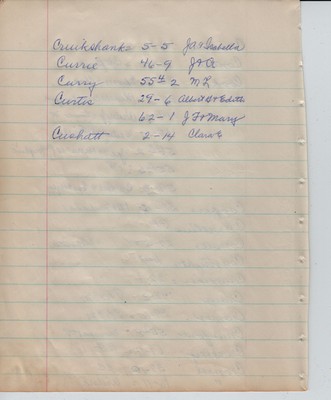 Cruikshank 5-5 JA & Isabella
Currie 46-9 J & A
Curry 55 4 2 M L
Curtis 29-6 Albert H & Edith
62-1 J F & Mary
Cushatt 2-14 Clara E